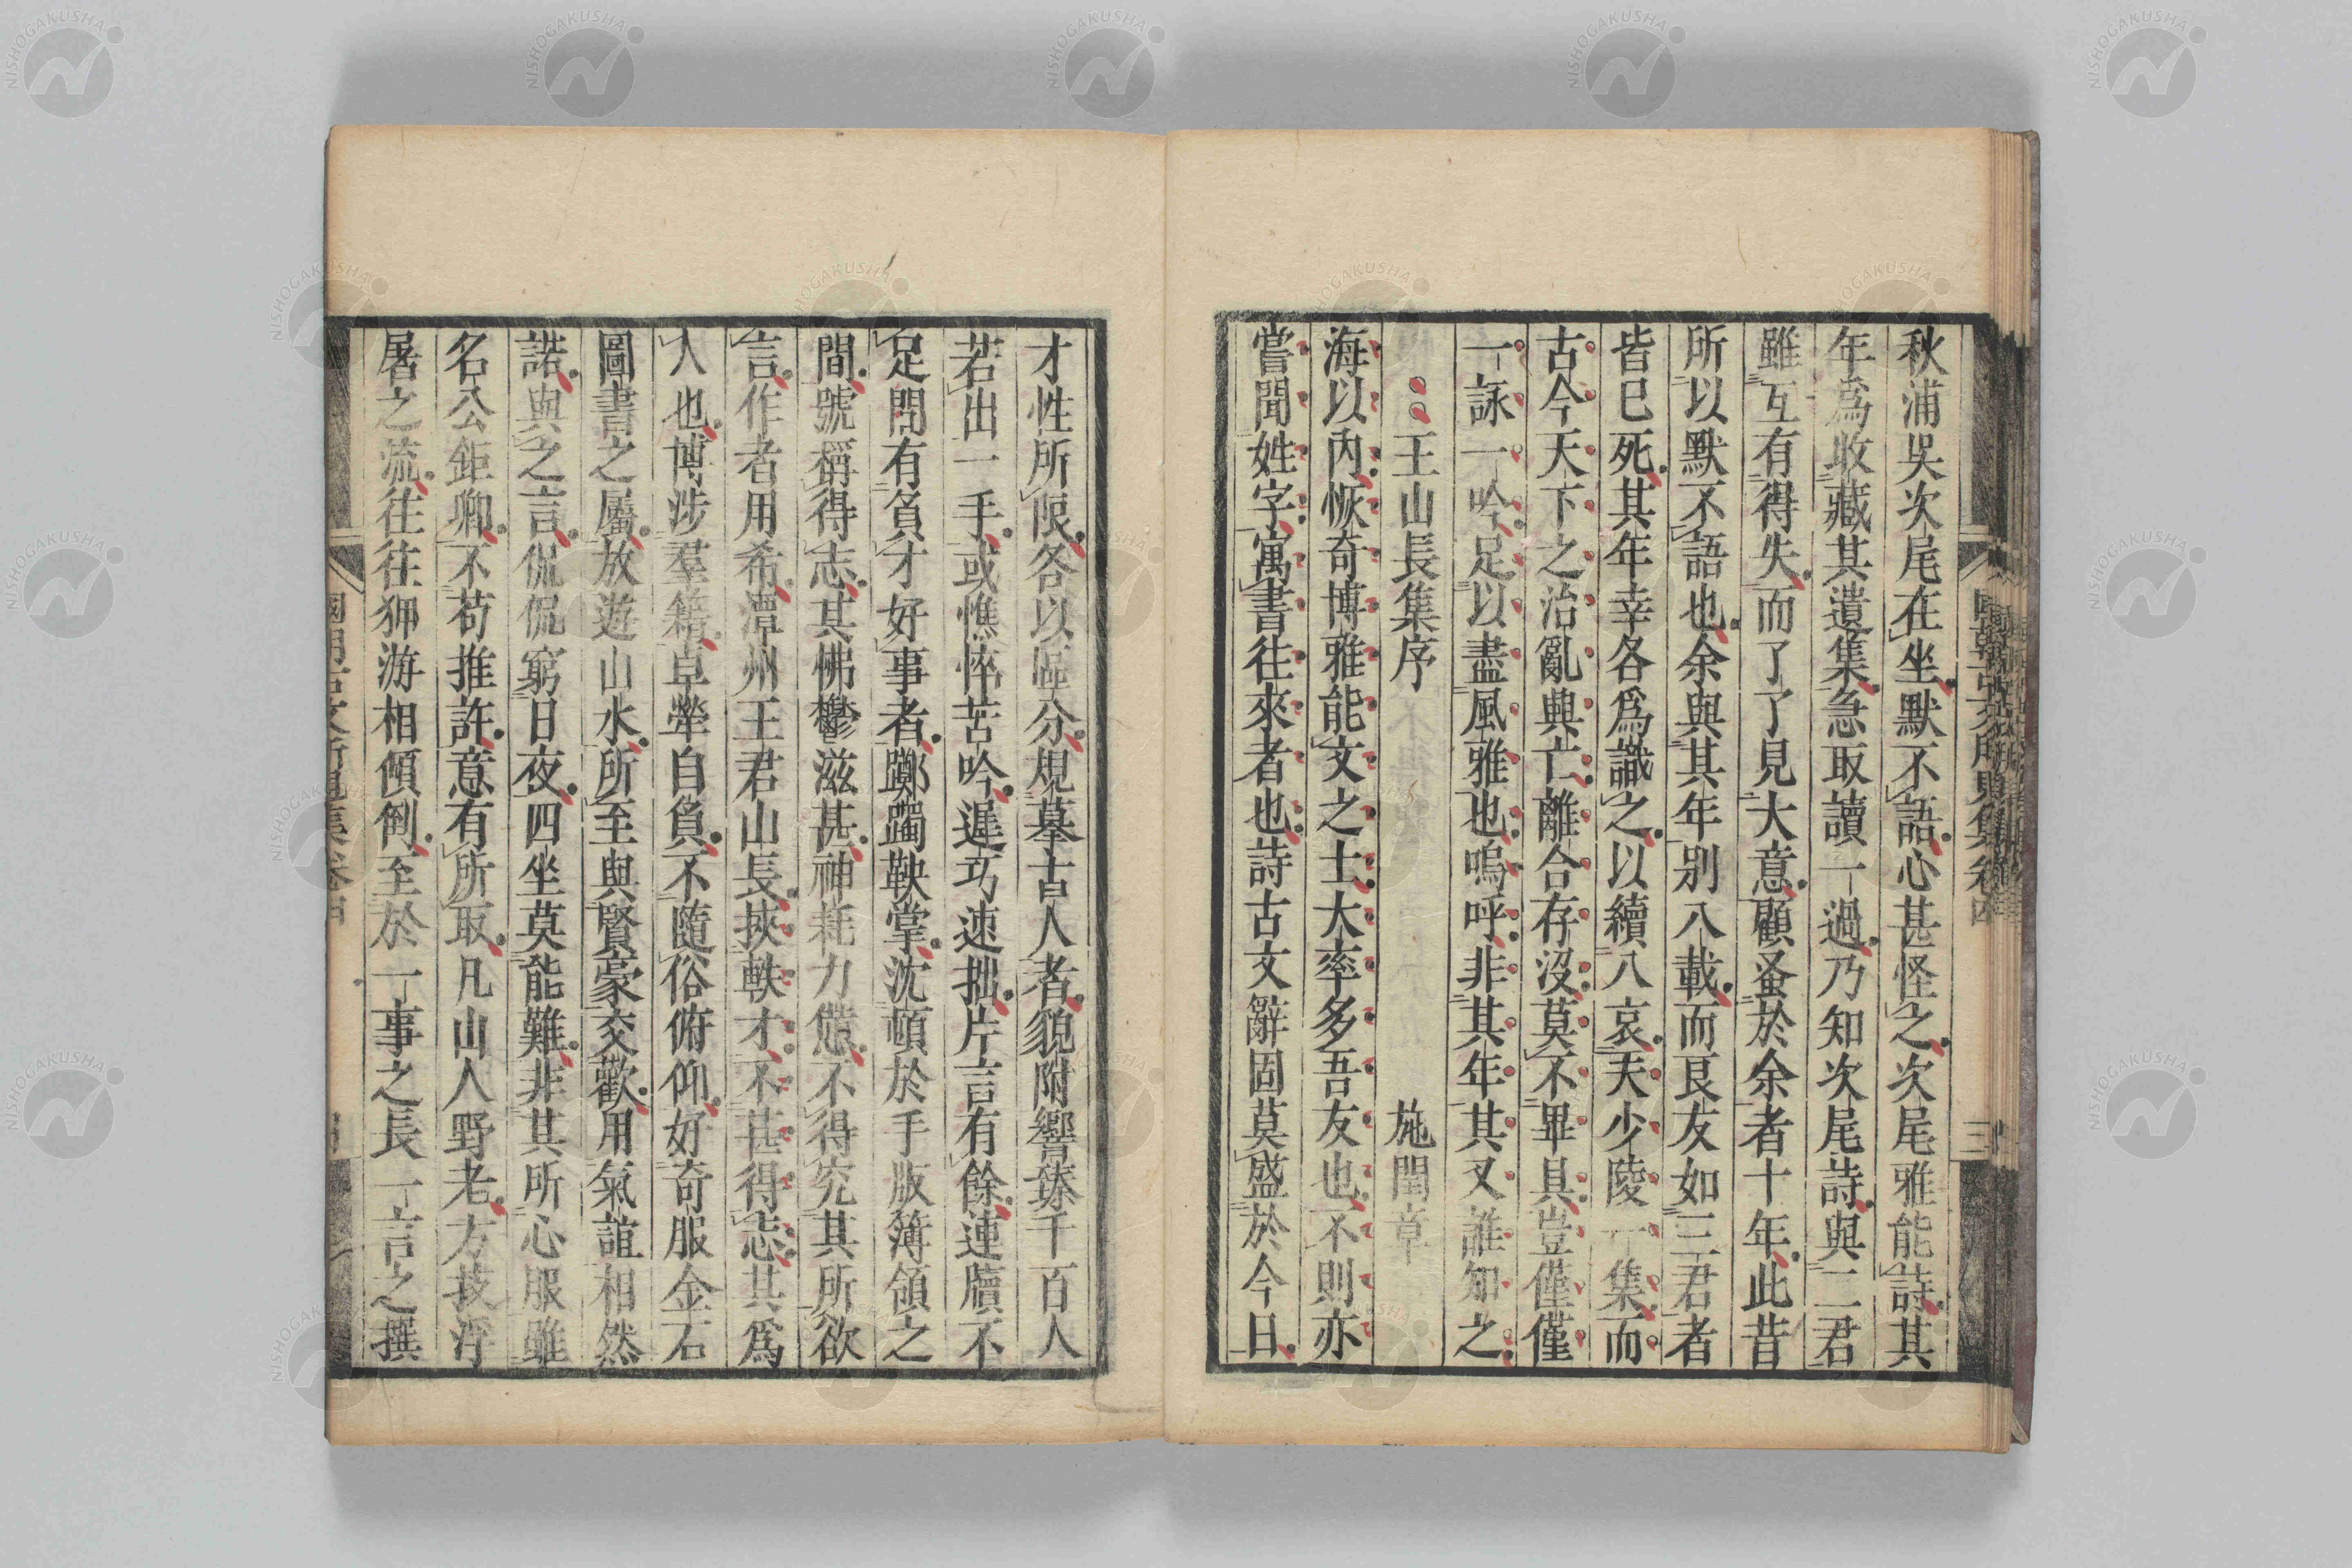 秋浦吳次尾在坐默不語心甚怪之次尾雅能詩其
年爲收藏其遺集急取讀一過乃知次尾詩與二君
雖互有得失而了了見大意顧蚤於余者十年此昔
所以默不語也余與其年别八載而良友如三君者
皆已死其年幸各爲識之以續八哀天少陵一集而
古今天下之治亂興亡離合存沒莫不畢具豈僅僅
一詠一吟足以盡風雅也嗚呼非其年其又誰知之
王山長集序 施閏章
海以內恢奇博雅能文之士大率多吾友也不則亦
嘗聞姓字寓書往來者也詩古文辭固莫盛於今日
才性所限各以區分規摹古人者貌附響臻千百人
若出一手或憔悴苦吟遲巧速拙片言有餘連牘不
足間有負才好事者躑躅鞅掌沈頓於手版簿領之
間號稱得志其怫鬱滋甚神耗力憊不得究其所欲
言作者用希潭州王君山長挾軼才不甚得志其爲
人也博涉羣籍卓犖自負不隨俗俯仰好奇服金石
圖書之屬放遊山水所至與賢豪交歡用氣誼相然
諾與之言侃侃窮日夜四坐莫能難非其所心服雖
名公鉅卿不苟推許意有所取凡山人野老方技浮
屠之流往往狎游相傾倒至於一事之長一言之撰
NISHOGAKUSHA